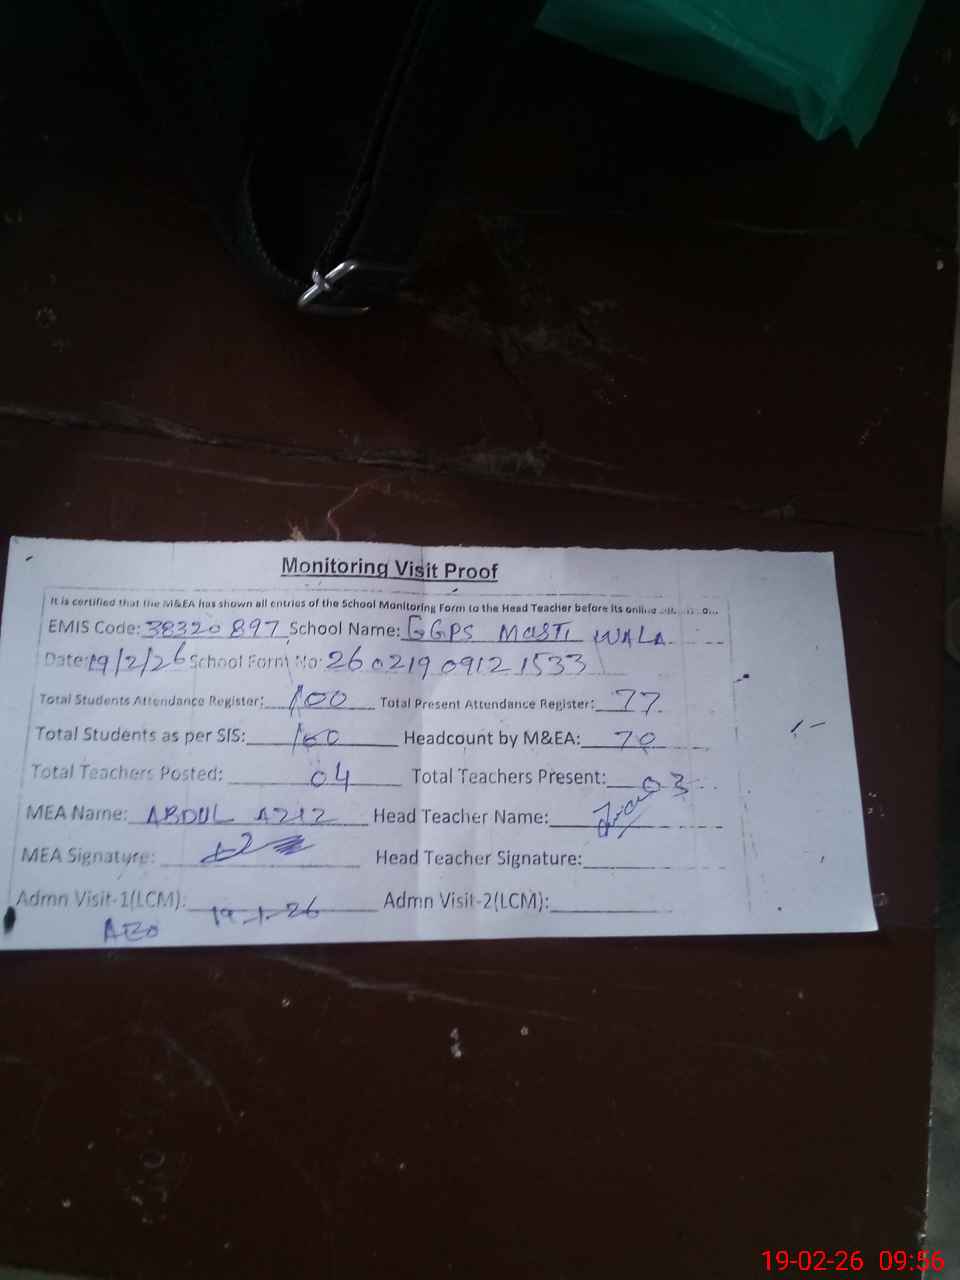 Monitoring Visit Proof
It is certified that the M&EA has shown all entries of the School Monitoring Form to the Head Teacher before its online
EMIS Code: 38320897 School Name: GGPS MASTI WALA
Date: 19/2/26 School Form No: 260219 0912 1533
Total Students Attendance Register: 100 Total Present Attendance Register: 77
Total Students as per SIS: 100 Headcount by M&EA: 70
Total Teachers Posted: 04 Total Teachers Present: 03
MEA Name: ABDUL AZIZ Head Teacher Name:
MEA Signature: Head Teacher Signature:
Admn Visit-1(LCM): 19-1-26 Admn Visit-2(LCM):
AEO
19-02-26 09:56